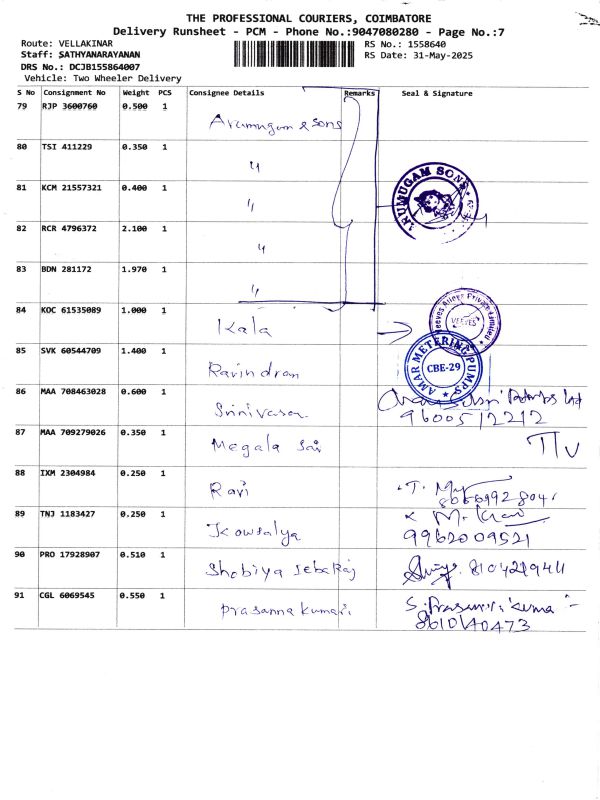 THE PROFESSIONAL COURIERS, COIMBATORE
Delivery Runsheet - PCM - Phone No.:9047080280 - Page No.:7
Route: VELLAKINAR
RS No.: 1558640
Staff: SATHYANARAYANAN
RS Date: 31-May-2025
DRS No.: DCJB155864007
Vehicle: Two Wheeler Delivery
S No Consignment No Weight PCS Consignee Details Remarks Seal & Signature
79 RJP 3600760 0.500 1 Arumugam & sons
80 TSI 411229 0.350 1 "
81 KCM 21557321 0.400 1 "
ARUMUGAM SONS
82 RCR 4796372 2.100 1 "
83 BDN 281172 1.970 1 "
84 KOC 61535089 1.000 1 Kala
Veeyes Alloys Private Limited
VEEYES
85 SVK 60544709 1.400 1 Ravindran
AMAR METERING PUMPS
CBE-29
86 MAA 708463028 0.600 1 Srinivasan
9600512212
87 MAA 709279026 0.350 1 Megala Sai
88 IXM 2304984 0.250 1 Ravi
89 TNJ 1183427 0.250 1 Kowsalya
9962009521
90 PRO 17928907 0.510 1 Shobiya Jebaraj
91 CGL 6069545 0.550 1 Prasanna kumari
8610140473